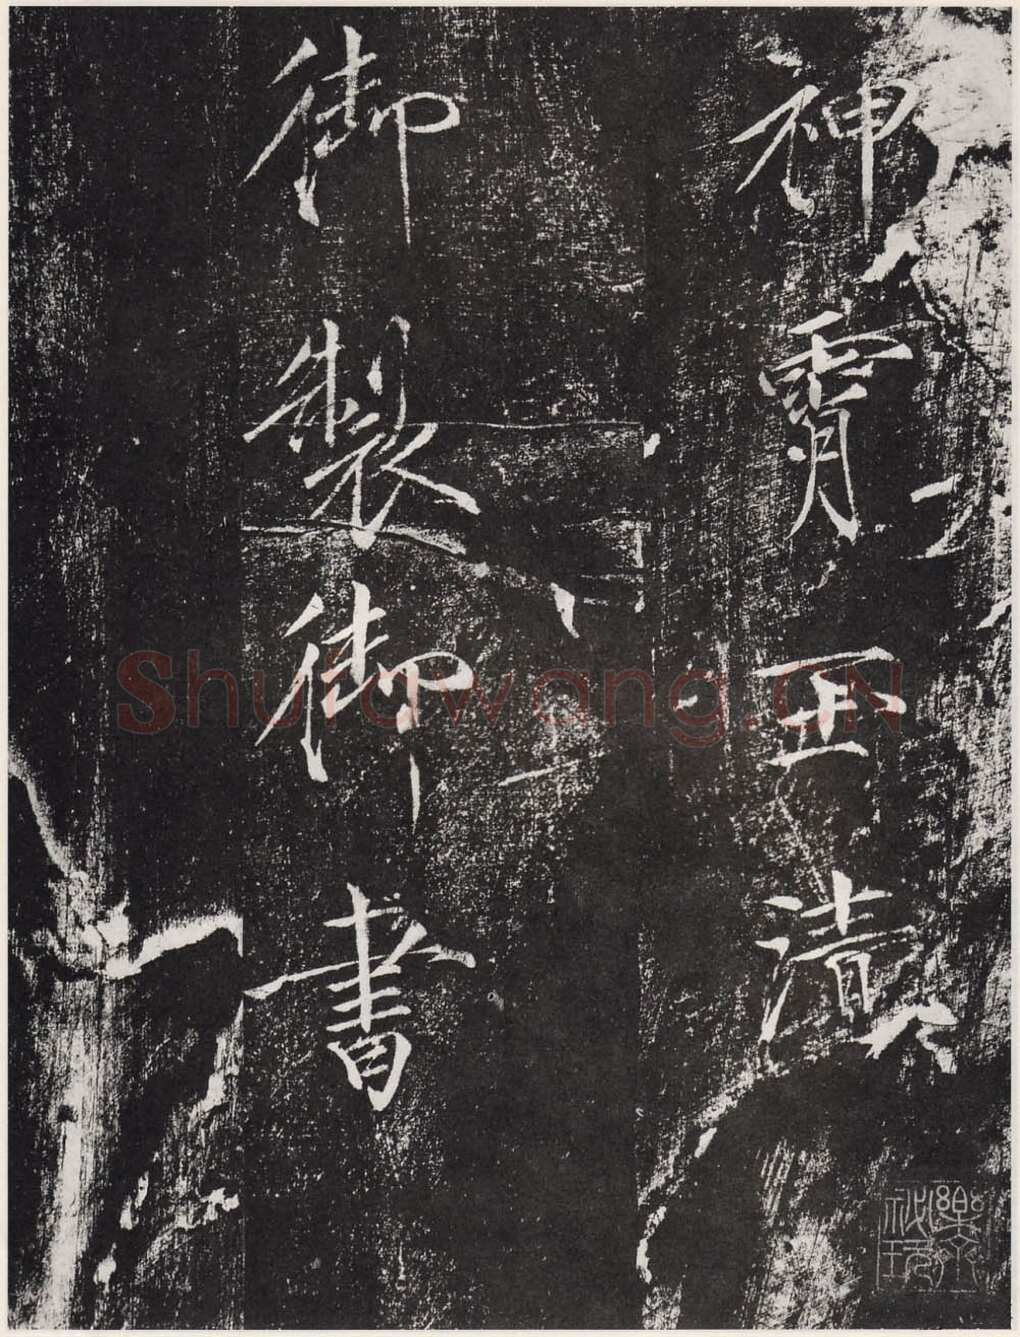 神霄玉清
御製御書
Shufawang.CN